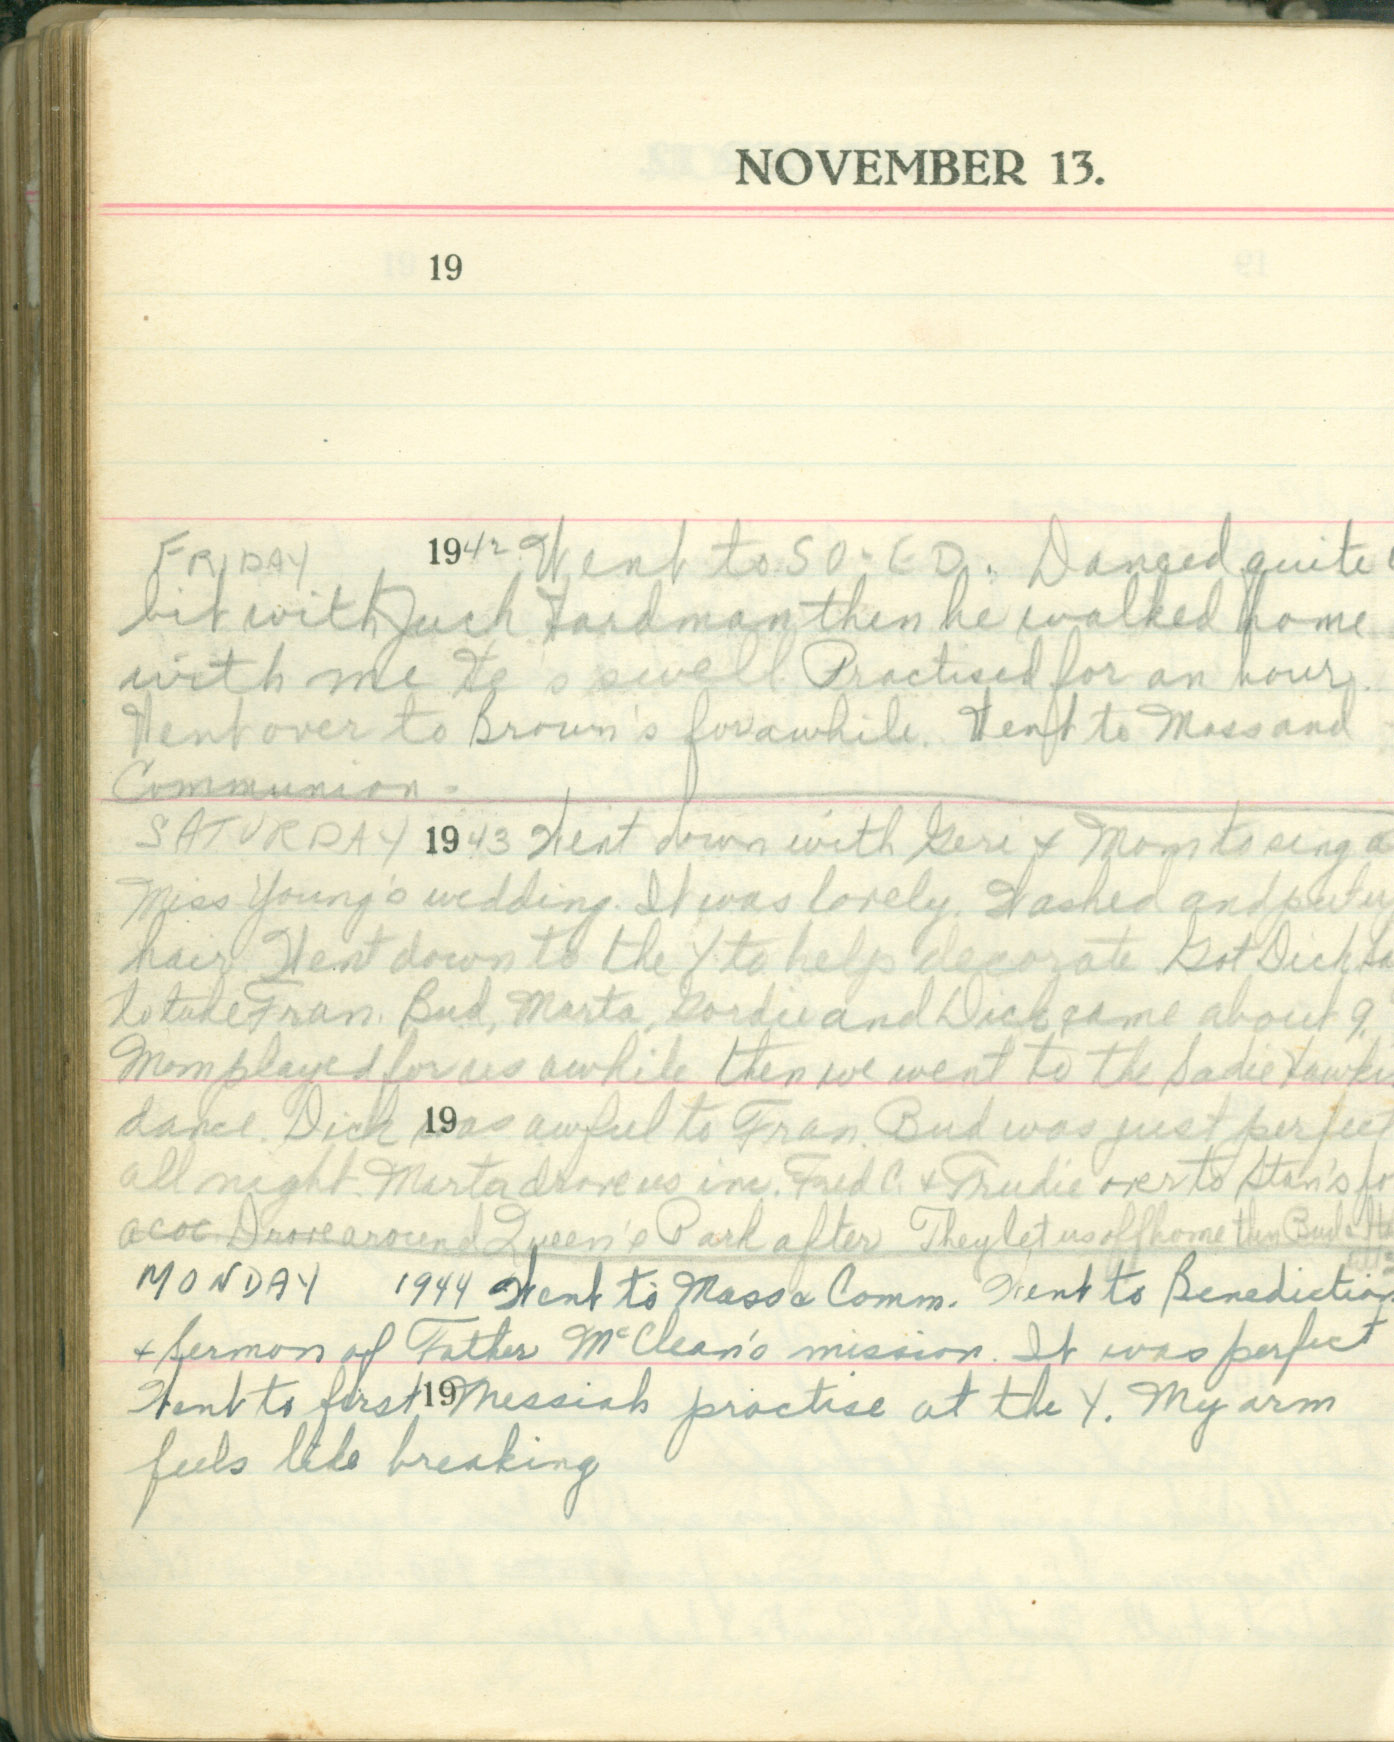 NOVEMBER 13.
19
FRIDAY 1942 Went to SO-ED. Danced quite
bit with Jack then he walked home
with me He s swell. Practised for an hour.
Went over to Brown's for awhile. Went to Mass and
Communion -
SATURDAY 1943 Went down with Geri & Mom to sing a
Miss Young's wedding. It was lovely. Washed and put up
hair. Went down to the Y to help decorate Got Dick
to take Fran. Bud, Marta, Gordie and Dick came about 9.
Mom played for us awhile then we went to the Sadie Hawkin
dance. Dick 19 was awful to Fran. Bud was just perfect
all night. Marta drove us inc. Fred C. & Trudie over to Stan's fo
a coc. Drove around Queen's Park after They let us off home then Bud &
MONDAY 1944 Went to Mass & Comm. Went to Benediction
& sermon of Father McClean's mission. It was perfect
Went to first 19 Messiah practise at the Y. My arm
feels like breaking